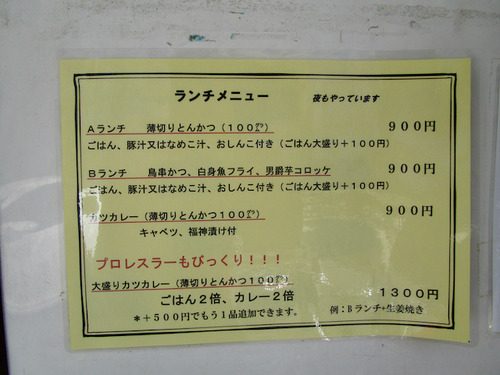 ランチメニュー　夜もやっています
Aランチ　薄切りとんかつ（100㌘）　900円
ごはん、豚汁又はなめこ汁、おしんこ付き（ごはん大盛り＋100円）
Bランチ　鳥串かつ、白身魚フライ、男爵芋コロッケ　900円
ごはん、豚汁又はなめこ汁、おしんこ付き（ごはん大盛り＋100円）
カツカレー（薄切りとんかつ100㌘）　900円
キャベツ、福神漬け付
プロレスラーもびっくり！！！
大盛りカツカレー（薄切りとんかつ100㌘）　1300円
ごはん2倍、カレー2倍
＊＋500円でもう1品追加できます。　例：Bランチ+生姜焼き